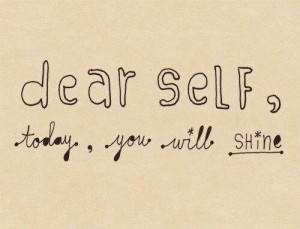 dear SELF,
today, you will SHiNe